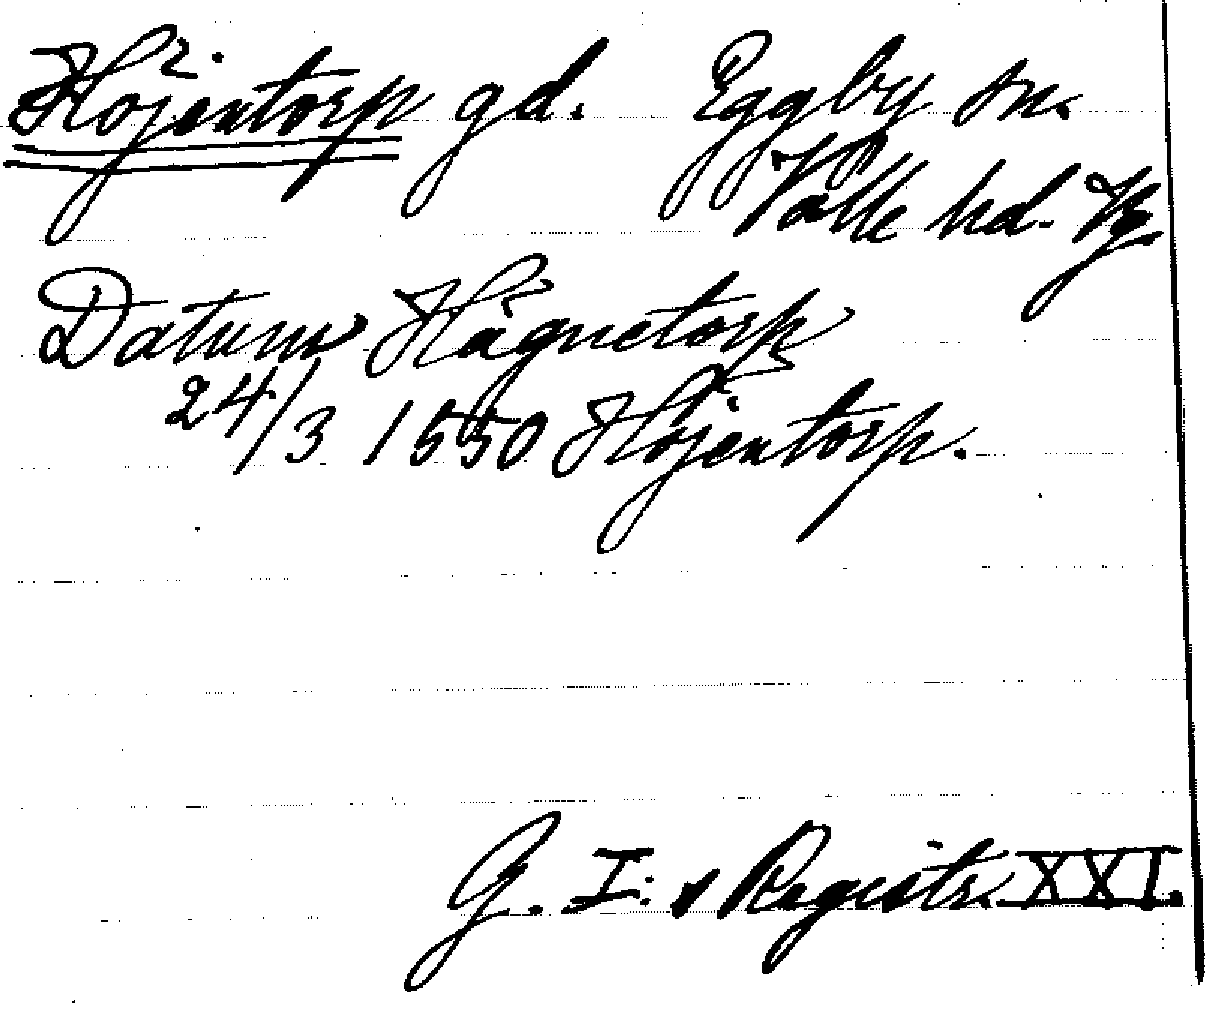 Höjentorp gd. Eggby sn.
Valle hd. Vg
Datum Hägnetorp
24/3 1550 Höjentorp.
G. I:s Registr. XXI.